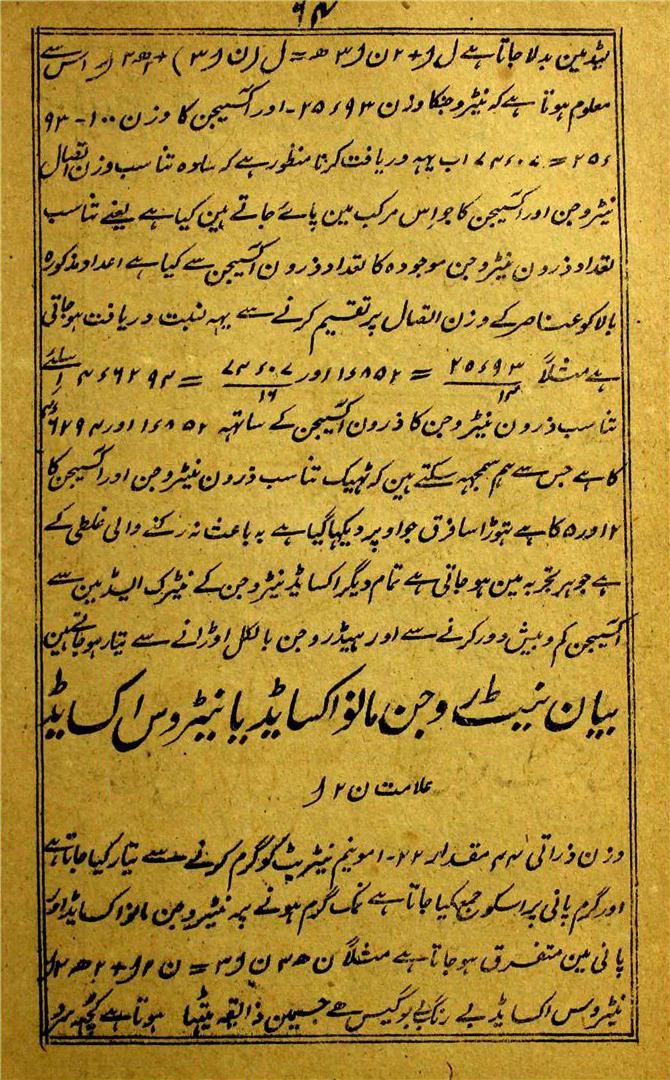 ۶۴
یڈ مین بدلا جاتا ہے ل ا + ۲ ن ا ۳ ھ = ل (ن ا ۳) + ھ ۲ ا اس سے
معلوم ہوتا ہے کہ نیٹروجنکا وزن ۲۵۶۹۳ - اور آکسیجن کا وزن ۱۰۰ - ۹۳
۲۵۶ = ۷۴۶۰۷ اب یہہ دریافت کرنا منظور ہے کہ سادہ تناسب وزن اتصال
نیٹروجن اور آکسیجن کا جو اِس مرکب مین پاۓ جاتے ہین کیا ہے یعنے تناسب
تعداد ذرون نیٹروجن موجودہ کا تعداد ذرون آکسیجن سے کیا ہے اعداد مذکورہ
بالا کو عناصر کے وزن اتصال پر تقسیم کرنے سے یہہ نسبت دریافت ہو جاتی
ہے مثلاً ۲۵۶۹۳ / ۱۴ = ۱۶۸۵۲ اور ۷۴۶۰۷ / ۱۶ = ۴۶۶۲۹۴
تناسب ذرون نیٹروجن کا ذرون آکسیجن کے ساتہہ ۱۶۸۵۲ اور ۶۲۹۴
کا ہے جس سے ہم سمجہہ سکتے ہین کہ ٹہیک تناسب ذرون نیٹروجن اور آکسیجن کا
۲ اور ۵ کا ہے تہوڑا سا فرق جو اوپر دیکہا گیا ہے بہ باعث نہ رکنے والی غلطی کے
ہے جو ہر تجربہ مین ہو جاتی ہے تمام دیگر اکسایڈ نیٹروجن کے نیٹرک ایسڈ مین سے
آکسیجن کم و بیش دور کرنے سے اور ہیڈروجن بالکل اوڑانے سے تیار ہو جاتے ہین
بیان نیٹروجن مانو اکسایڈ یا نیٹروس اکسایڈ
علامت ن ۲ ا
وزن ذراتی ۴۴ مقدار ۲۲ - امونیم نیٹریٹ کو گرم کرنے سے تیار کیا جاتا ہے
اور گرم پانی پر اسکو جمع کیا جاتا ہے نمک گرم ہونے پہ نیٹروجن مانو اکسایڈ اور
پانی مین متفرق ہو جاتا ہے مثلاً ن ھ ۴ ن ا ۳ = ن ۲ ا + ۲ ھ ۲ ا
نیٹروس اکسایڈ بے رنگ بے بو گیس ہے جسمین ذایقہ میٹہا ہوتا ہے کچہہ سرد